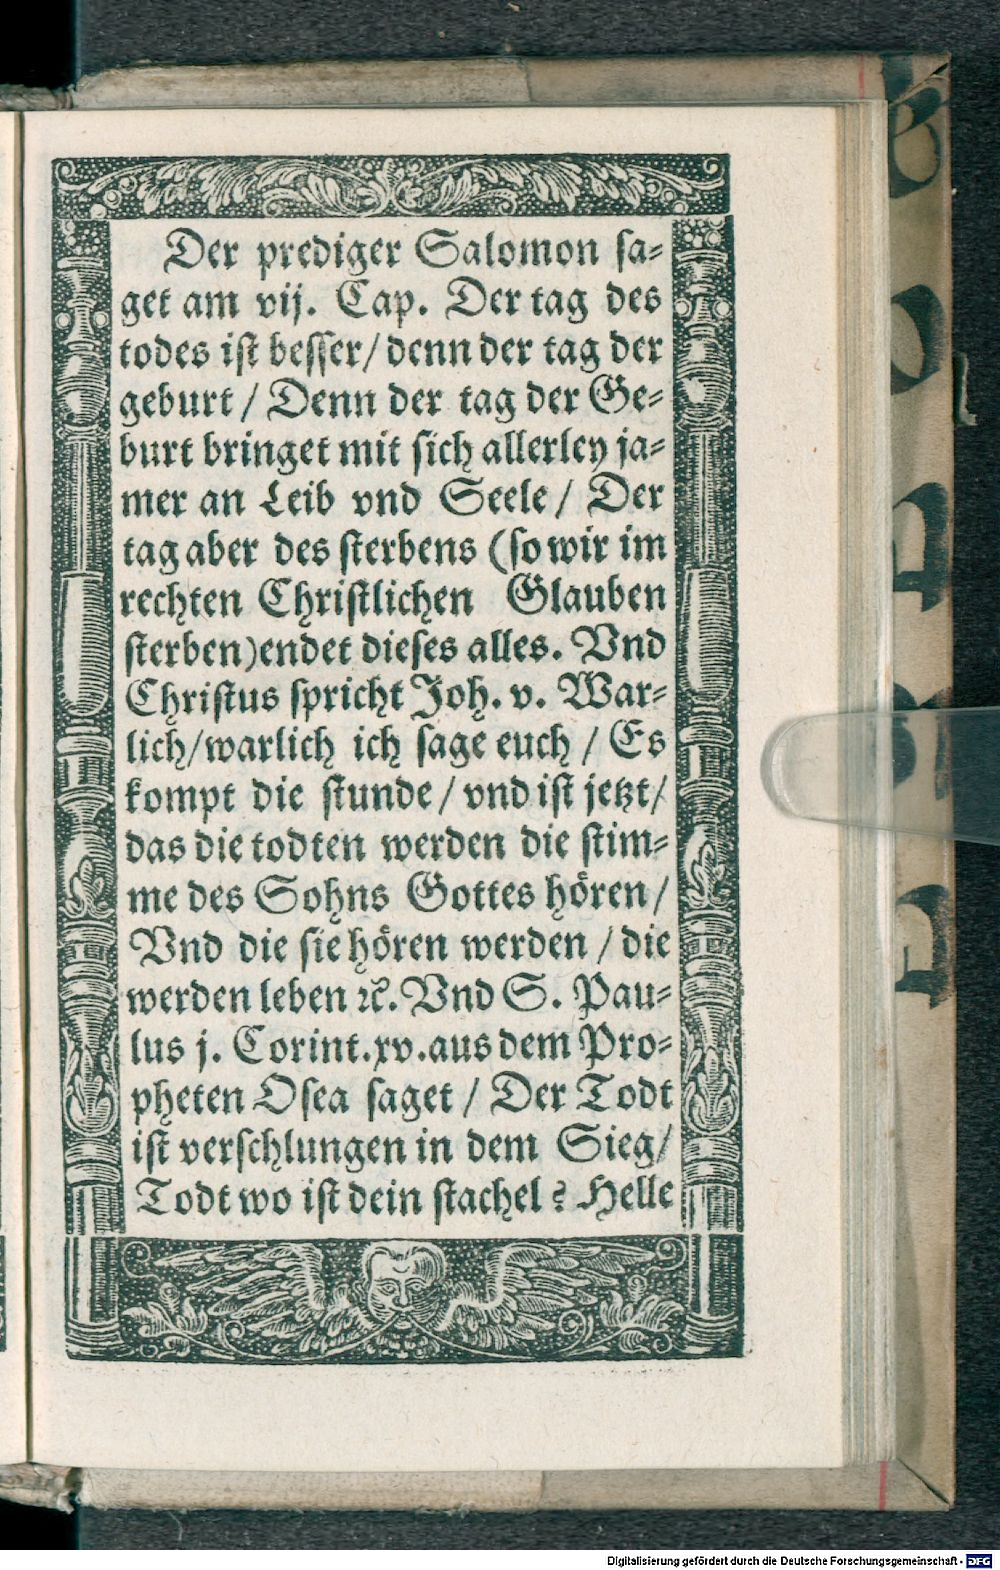 Der prediger Salomon ſa⸗
get am vij. Cap. Der tag des
todes iſt beſſer/ denn der tag der
geburt / Denn der tag der Ge⸗
burt bringet mit ſich allerley ja⸗
mer an Leib vnd Seele / Der
tag aber des ſterbens (ſo wir im
rechten Chriſtlichen Glauben
ſterben)endet dieſes alles. Vnd
Chriſtus ſpricht Joh. v. War⸗
lich/warlich ich ſage euch / Es
kompt die ſtunde / vnd iſt jetzt/
das die todten werden die ſtim⸗
me des Sohns Gottes hören /
Vnd die ſie hören werden / die
werden leben ꝛc̃. Vnd S. Pau⸗
lus j. Corint.xv.aus dem Pro⸗
pheten Oſea ſaget / Der Todt
iſt verſchlungen in dem Sieg/
Todt wo iſt dein ſtachel ? Helle
Digitalisierung gefördert durch die Deutsche Forschungsgemeinschaft - DFG